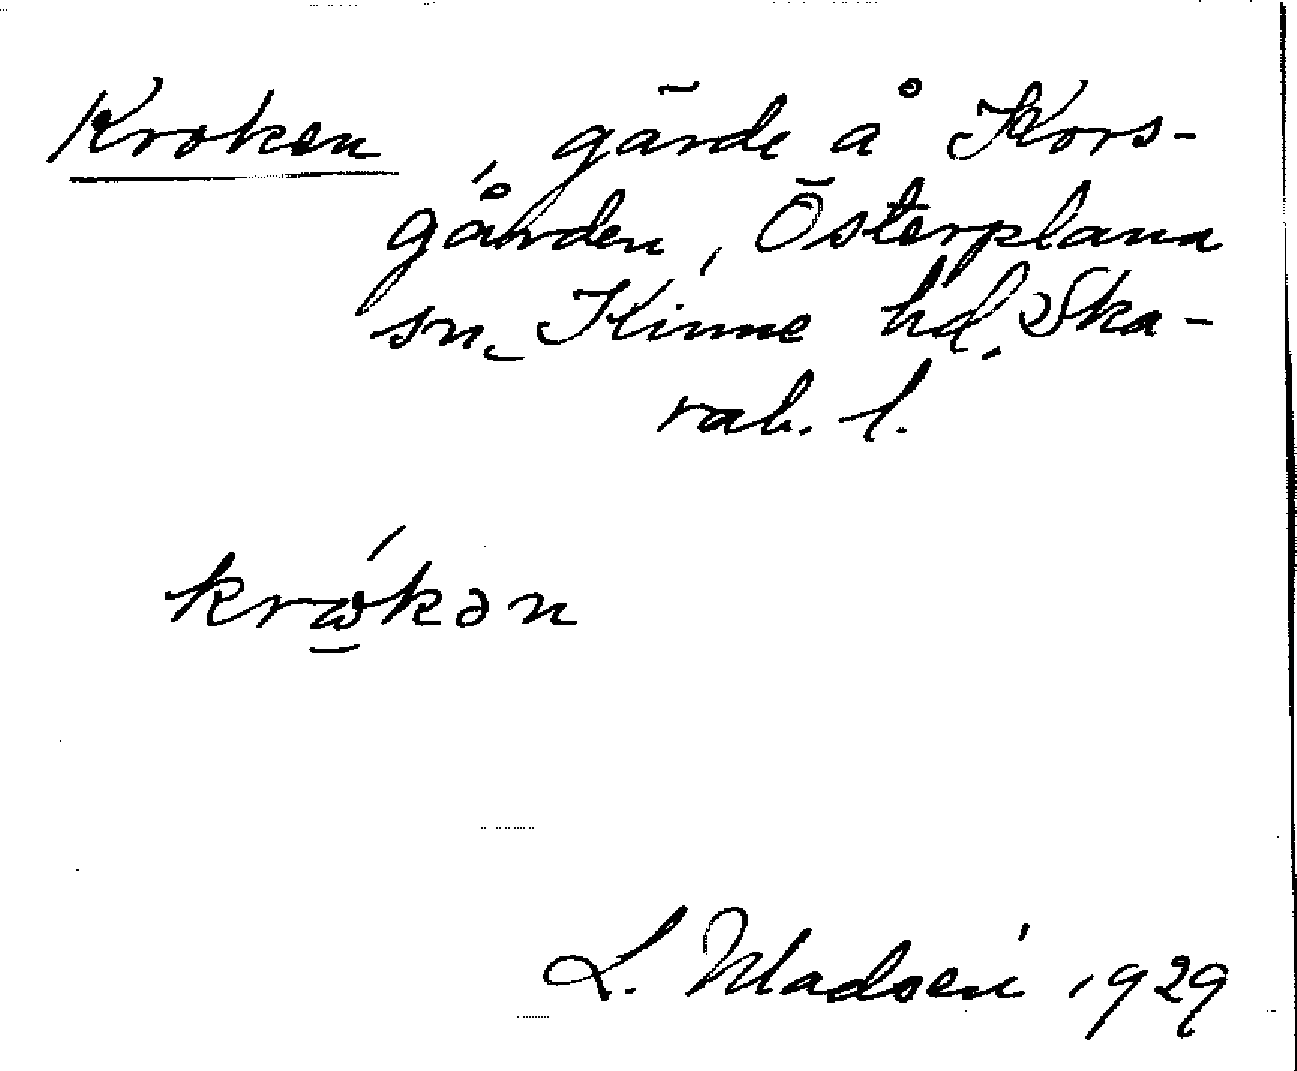 Kroken, gärde å Kors-
gården, Österplana
sn, Kinne hd. Ska-
rab. l.
krώ̲kən
L. Madsén 1929